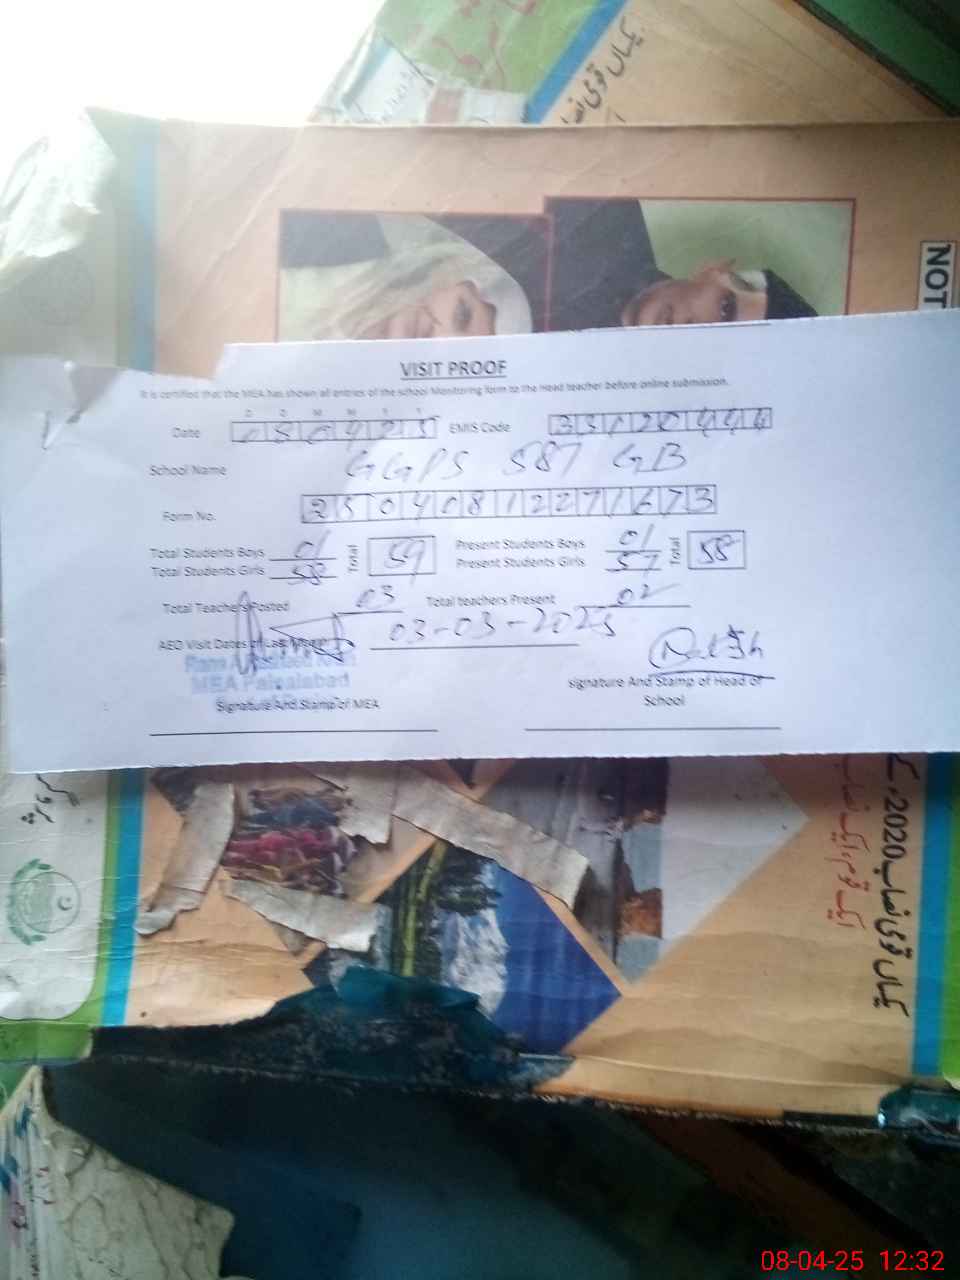 یکساں قومی نصا
NOT
VISIT PROOF
It is certified that the MEA has shown all entries of the school Monitoring form to the Head teacher before online submission.
D D M M Y Y
Date 080425 EMIS Code 33120444
School Name GGPS 587 GB
Form No. 25040812271673
Total Students Boys 01 Total 59 Present Students Boys 01 Total 58
Total Students Girls 58 Present Students Girls 57
Total Teachers Posted 03 Total teachers Present 02
AEO Visit Dates of Last 03-03-2025
MEA Faisalabad
Signature And Stamp of MEA
signature And Stamp of Head of
School
یکساں قومی نصاب 2020
08-04-25 12:32